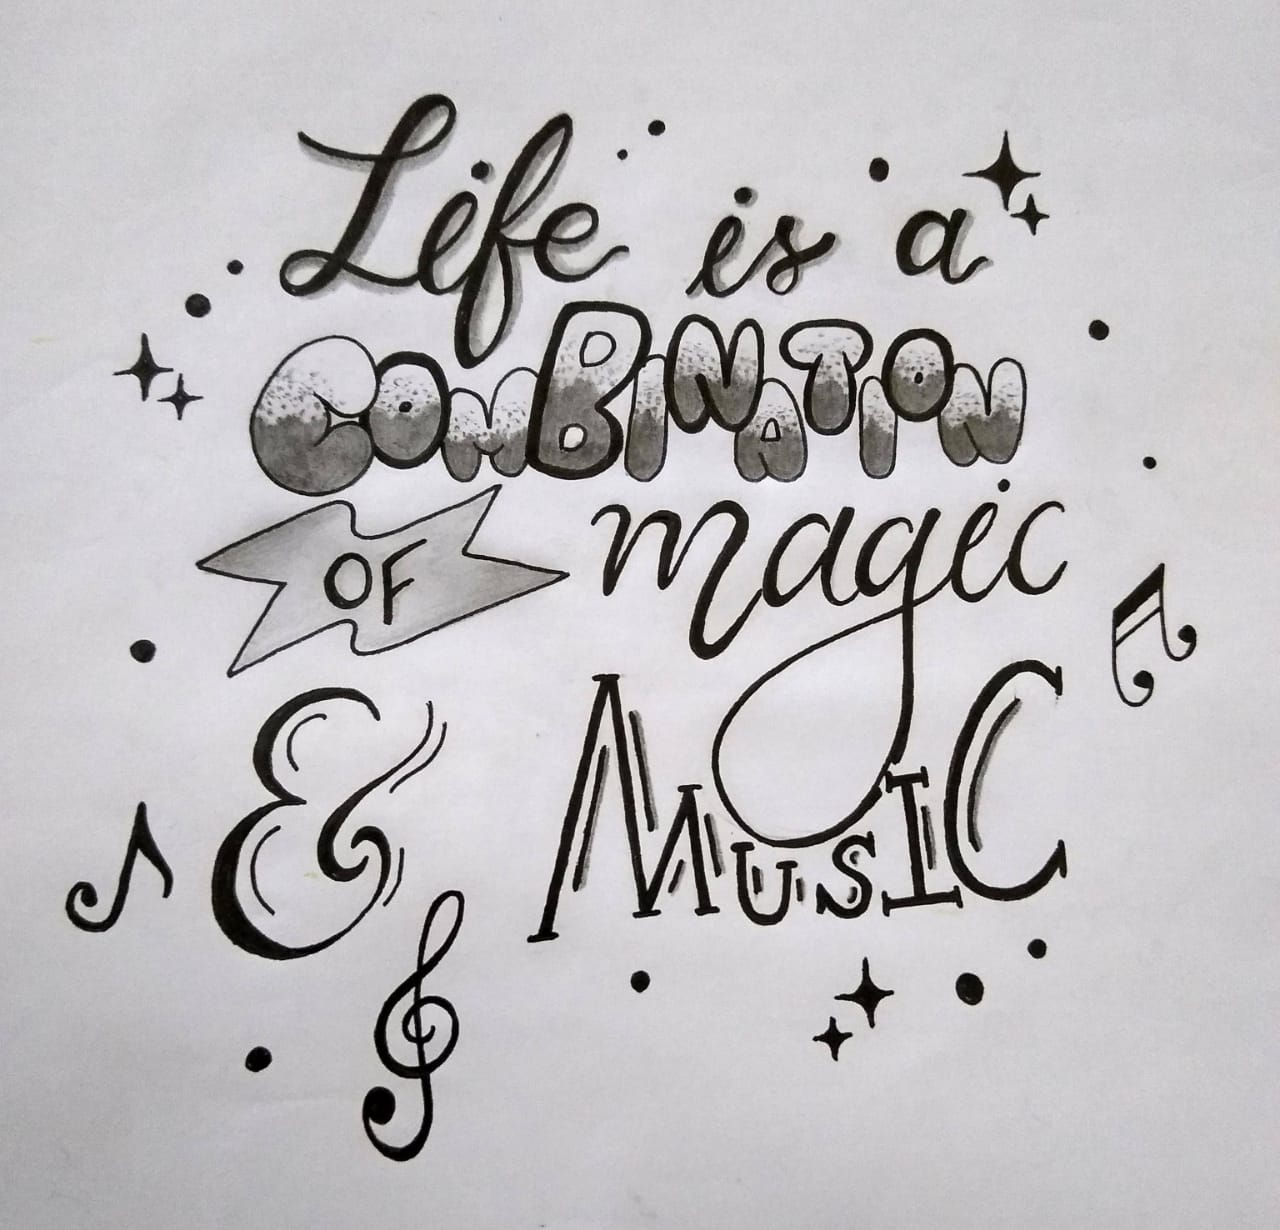 Life is a
COMBINATION
OF magic
& MUSIC